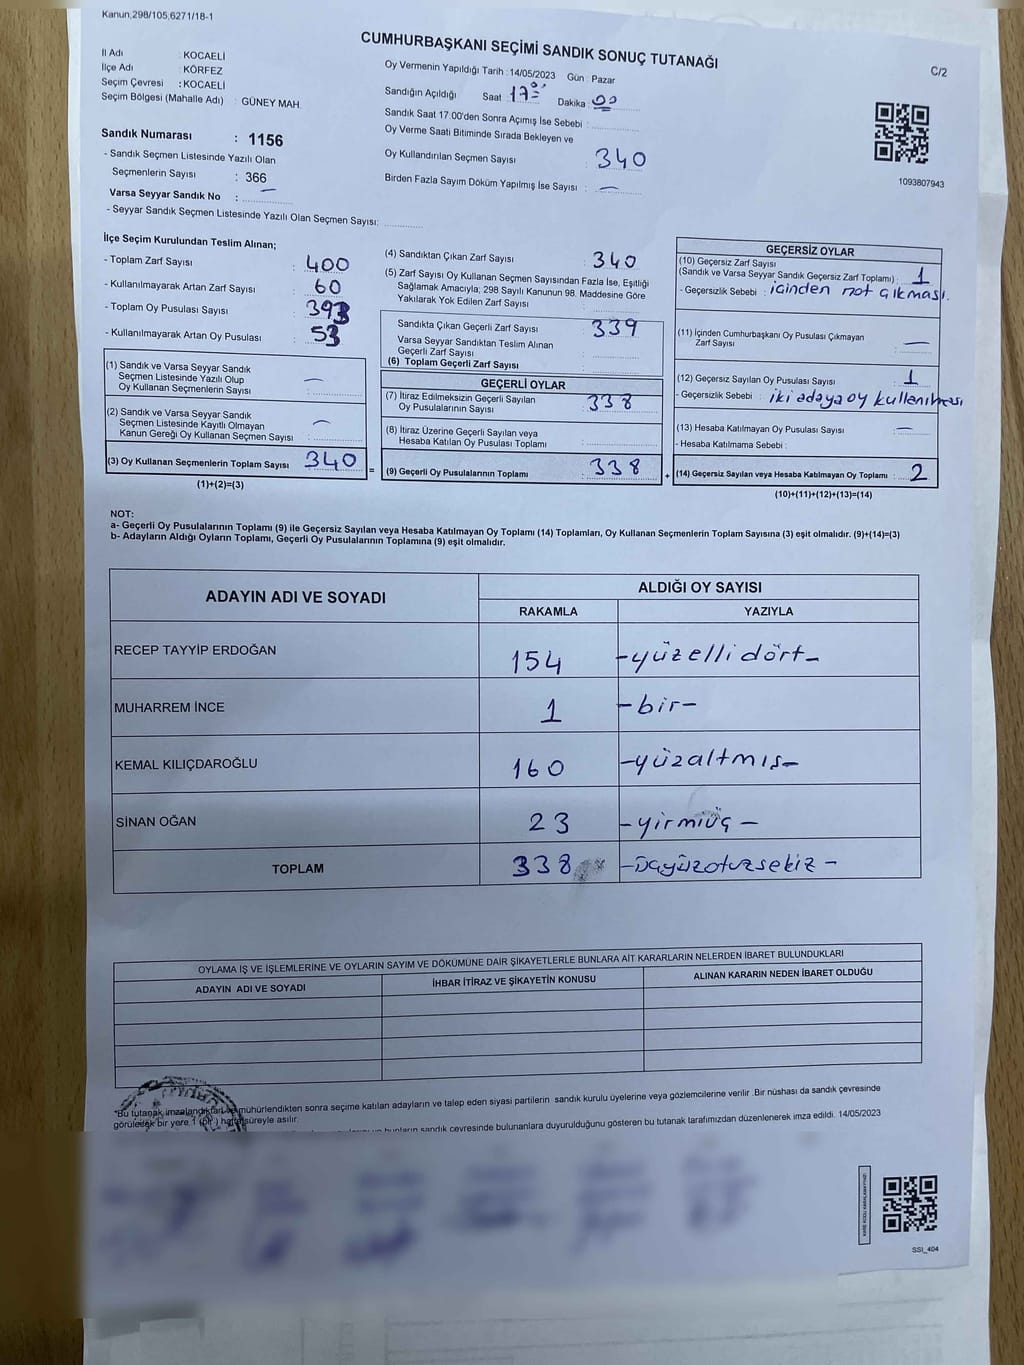 Kanun,298/105,6271/18-1
CUMHURBAŞKANI SEÇİMİ SANDIK SONUÇ TUTANAĞI
C/2
İl Adı : KOCAELİ
İlçe Adı : KÖRFEZ
Seçim Çevresi : KOCAELİ
Seçim Bölgesi (Mahalle Adı) : GÜNEY MAH.
Sandık Numarası : 1156
- Sandık Seçmen Listesinde Yazılı Olan
Seçmenlerin Sayısı : 366
Varsa Seyyar Sandık No : —
- Seyyar Sandık Seçmen Listesinde Yazılı Olan Seçmen Sayısı:
Oy Vermenin Yapıldığı Tarih : 14/05/2023 Gün : Pazar
Sandığın Açıldığı Saat 17 Dakika : 00
Sandık Saat 17.00'den Sonra Açımış İse Sebebi :
Oy Verme Saati Bitiminde Sırada Bekleyen ve
Oy Kullandırılan Seçmen Sayısı : 340
Birden Fazla Sayım Döküm Yapılmış İse Sayısı : —
1093807943
İlçe Seçim Kurulundan Teslim Alınan;
- Toplam Zarf Sayısı : 400
- Kullanılmayarak Artan Zarf Sayısı : 60
- Toplam Oy Pusulası Sayısı : 393
- Kullanılmayarak Artan Oy Pusulası : 53
(1) Sandık ve Varsa Seyyar Sandık
Seçmen Listesinde Yazılı Olup
Oy Kullanan Seçmenlerin Sayısı : —
(2) Sandık ve Varsa Seyyar Sandık
Seçmen Listesinde Kayıtlı Olmayan
Kanun Gereği Oy Kullanan Seçmen Sayısı : —
(3) Oy Kullanan Seçmenlerin Toplam Sayısı : 340
(1)+(2)=(3)
=
(4) Sandıktan Çıkan Zarf Sayısı : 340
(5) Zarf Sayısı Oy Kullanan Seçmen Sayısından Fazla İse, Eşitliği
Sağlamak Amacıyla; 298 Sayılı Kanunun 98. Maddesine Göre
Yakılarak Yok Edilen Zarf Sayısı :
Sandıkta Çıkan Geçerli Zarf Sayısı : 339
Varsa Seyyar Sandıktan Teslim Alınan
Geçerli Zarf Sayısı :
(6) Toplam Geçerli Zarf Sayısı :
GEÇERLİ OYLAR
(7) İtiraz Edilmeksizin Geçerli Sayılan
Oy Pusulalarının Sayısı : 338
(8) İtiraz Üzerine Geçerli Sayılan veya
Hesaba Katılan Oy Pusulası Toplamı :
(9) Geçerli Oy Pusulalarının Toplamı : 338
+
GEÇERSİZ OYLAR
(10) Geçersiz Zarf Sayısı
(Sandık ve Varsa Seyyar Sandık Geçersiz Zarf Toplamı) : 1
- Geçersizlik Sebebi : içinden not çıkması.
(11) İçinden Cumhurbaşkanı Oy Pusulası Çıkmayan
Zarf Sayısı : —
(12) Geçersiz Sayılan Oy Pusulası Sayısı : 1
- Geçersizlik Sebebi : iki adaya oy kullanılması
(13) Hesaba Katılmayan Oy Pusulası Sayısı : —
- Hesaba Katılmama Sebebi :
(14) Geçersiz Sayılan veya Hesaba Katılmayan Oy Toplamı : 2
(10)+(11)+(12)+(13)=(14)
NOT:
a- Geçerli Oy Pusulalarının Toplamı (9) ile Geçersiz Sayılan veya Hesaba Katılmayan Oy Toplamı (14) Toplamları, Oy Kullanan Seçmenlerin Toplam Sayısına (3) eşit olmalıdır. (9)+(14)=(3)
b- Adayların Aldığı Oyların Toplamı, Geçerli Oy Pusulalarının Toplamına (9) eşit olmalıdır.
ADAYIN ADI VE SOYADI ALDIĞI OY SAYISI
RAKAMLA YAZIYLA
RECEP TAYYİP ERDOĞAN 154 -yüzellidört-
MUHARREM İNCE 1 -bir-
KEMAL KILIÇDAROĞLU 160 -yüzaltmış-
SİNAN OĞAN 23 -yirmiüç-
TOPLAM 338 -üçyüzotuzsekiz-
OYLAMA İŞ VE İŞLEMLERİNE VE OYLARIN SAYIM VE DÖKÜMÜNE DAİR ŞİKAYETLERLE BUNLARA AİT KARARLARIN NELERDEN İBARET BULUNDUKLARI
ADAYIN ADI VE SOYADI İHBAR İTİRAZ VE ŞİKAYETİN KONUSU ALINAN KARARIN NEDEN İBARET OLDUĞU
*Bu tutanak imzalandıktan ve mühürlendikten sonra seçime katılan adayların ve talep eden siyasi partilerin sandık kurulu üyelerine veya gözlemcilerine verilir .Bir nüshası da sandık çevresinde
görülecek bir yere 1 (bir ) hafta süreyle asılır.
bunların sandık çevresinde bulunanlara duyurulduğunu gösteren bu tutanak tarafımızdan düzenlenerek imza edildi. 14/05/2023
SSİ_404